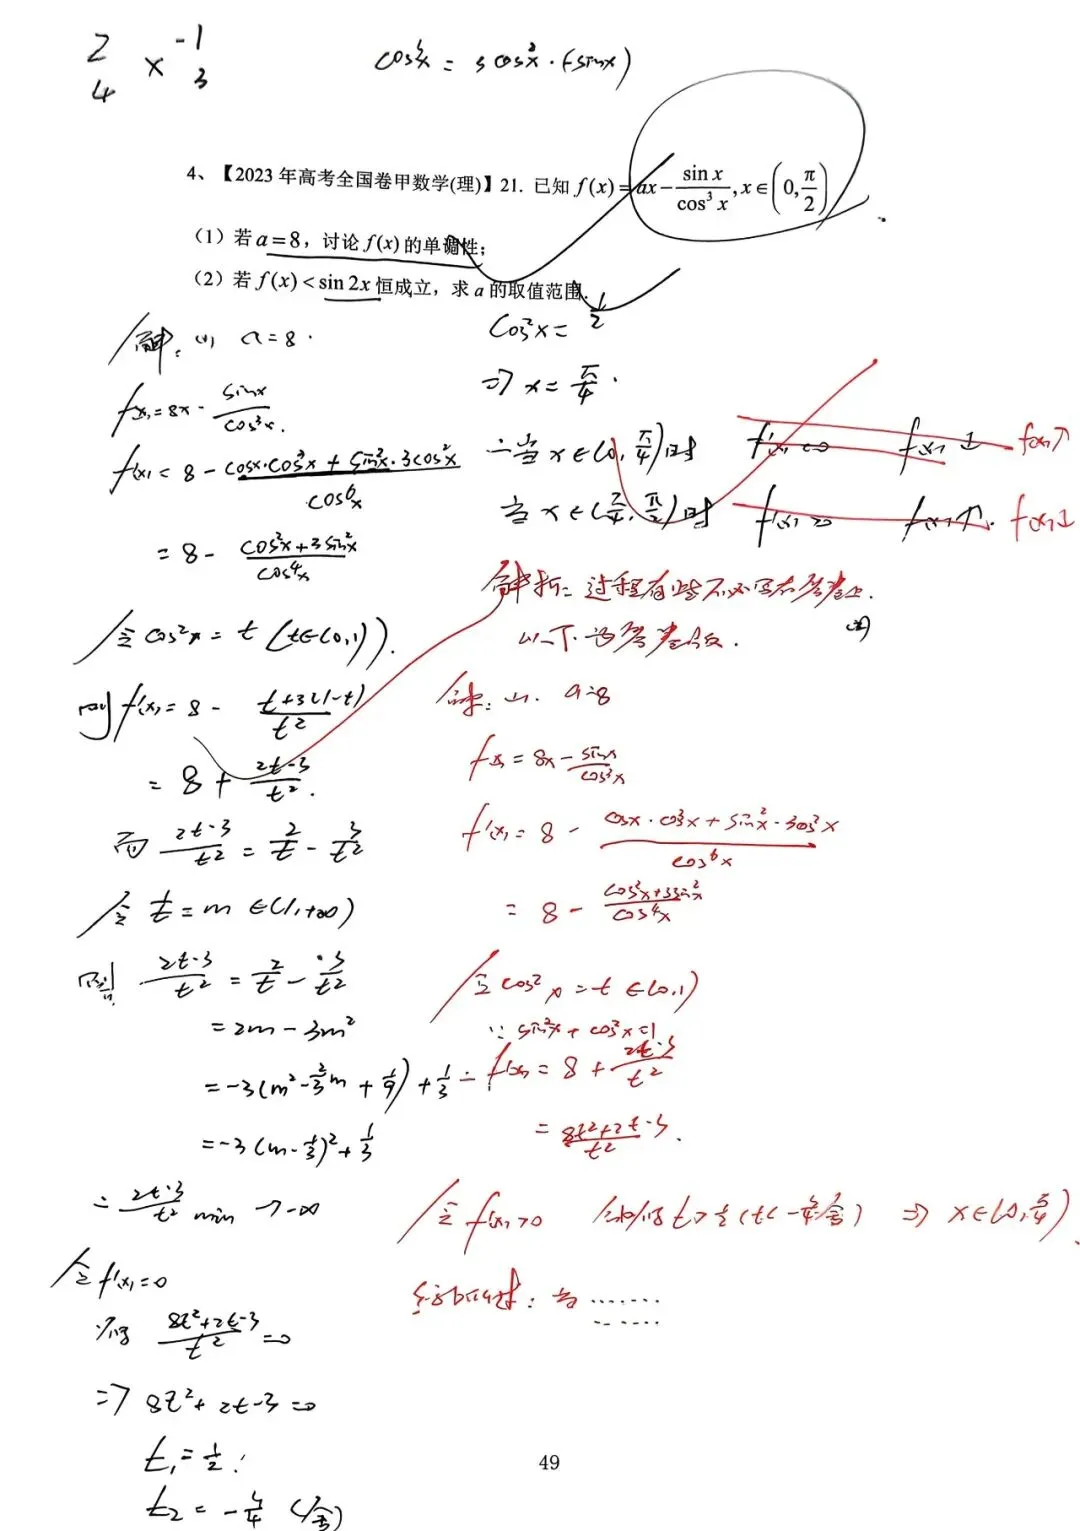 2 × -1
4   3
cos³x = 3cos²x·(-sinx)
4、【2023 年高考全国卷甲数学(理)】21. 已知 f(x)=ax-sin x/cos³ x, x∈(0, π/2)
（1）若 a=8，讨论 f(x) 的单调性;
（2）若 f(x)<sin 2x 恒成立，求 a 的取值范围.
解: (1) a=8.
f(x)=8x-sinx/cos³x.
f'(x)=8-(cosx·cos³x+sin²x·3cos²x)/cos⁶x
=8-(cos²x+3sin²x)/cos⁴x
令cos²x=t (t∈(0,1)).
则f'(x)=8-(t+3(1-t))/t²
=8+(2t-3)/t².
而(2t-3)/t²=2/t-3/t²
令1/t=m∈(1,+∞)
则(2t-3)/t²=2/t-3/t²
=2m-3m²
=-3(m²-2/3m+1/9)+1/3
=-3(m-1/3)²+1/3
∴(2t-3)/t² min→-∞
令f'(x)=0
得(8t²+2t-3)/t²=0
⇒8t²+2t-3=0
t₁=1/2.
t₂=-3/4 (舍)
cos²x=1/2
⇒x=π/4.
∴当x∈(0,π/4)时 f'(x)<0 f(x)↓ f(x)↑
当x∈(π/4,π/2)时 f'(x)>0 f(x)↑. f(x)↓
解析: 过程有些不必写在答卷上.
以下为答卷
解: (1). a=8
f(x)=8x-sinx/cos³x
f'(x)=8-(cosx·cos³x+sin²x·3cos²x)/cos⁶x
=8-(cos²x+3sin²x)/cos⁴x
令cos²x=t∈(0,1)
∵sin²x+cos²x=1
∴f'(x)=8+(2t-3)/t²
=(8t²+2t-3)/t².
令f'(x)>0 解得t>1/2 (t<-3/4舍) ⇒x∈(0,π/4).
当……
……
49